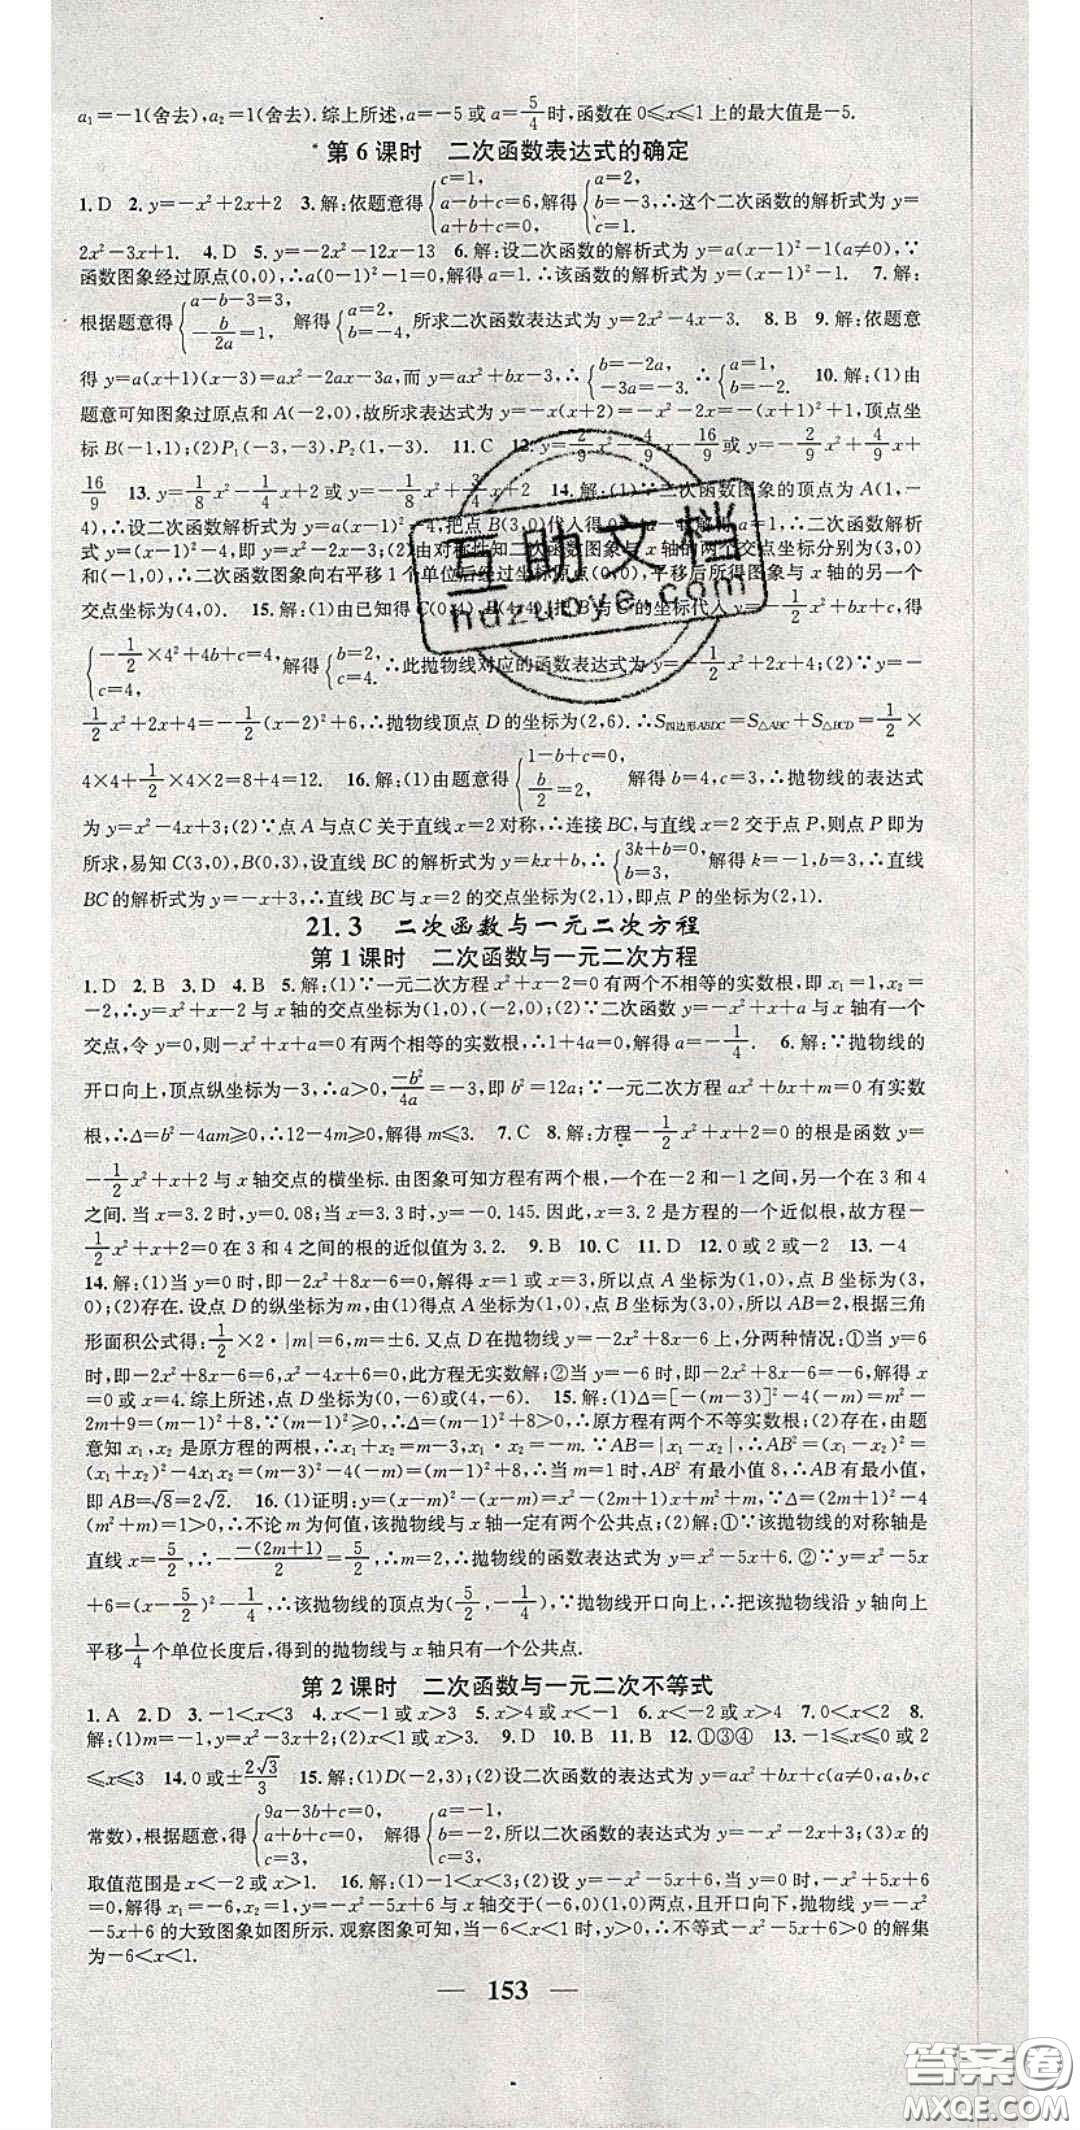 a₁=-1(舍去),a₂=1(舍去).综上所述,a=-5或a=5/4时,函数在0⩽x⩽1上的最大值是-5.
第6课时 二次函数表达式的确定
1.D 2.y=-x²+2x+2 3.解:依题意得{c=1, a-b+c=6, a+b+c=0, 解得{a=2, b=-3, c=1. ∴这个二次函数的解析式为y=
2x²-3x+1. 4.D 5.y=-2x²-12x-13 6.解:设二次函数的解析式为y=a(x-1)²-1(a≠0),∵
函数图象经过原点(0,0),∴a(0-1)²-1=0,解得a=1.∴该函数的解析式为y=(x-1)²-1. 7.解:
根据题意得{a-b-3=3, -b/2a=1, 解得{a=2, b=-4, 所求二次函数表达式为y=2x²-4x-3. 8.B 9.解:依题意
得y=a(x+1)(x-3)=ax²-2ax-3a,而y=ax²+bx-3,∴{b=-2a, -3a=-3. ∴{a=1, b=-2. 10.解:(1)由
题意可知图象过原点和A(-2,0),故所求表达式为y=-x(x+2)=-x²-2x=-(x+1)²+1,顶点坐
标B(-1,1);(2)P₁(-3,-3),P₂(1,-3). 11.C 12.y=2/9x²-4/9x-16/9或y=-2/9x²+4/9x+
16/9 13.y=1/8x²-1/4x+2或y=-1/8x²+3/4x+2 14.解:(1)∵二次函数图象的顶点为A(1,-
4),∴设二次函数解析式为y=a(x-1)²-4,把点B(3,0)代入得0=4a-4,解得a=1,∴二次函数解析
式y=(x-1)²-4,即y=x²-2x-3;(2)由对称性知二次函数图象与x轴的两个交点坐标分别为(3,0)
和(-1,0)∴二次函数图象向右平移1个单位后经过坐标原点(0,0),平移后所得图象与x轴的另一个
交点坐标为(4,0). 15.解:(1)由已知得C(0,4),B(4,4),把B与C的坐标代入y=-1/2x²+bx+c,得
{-1/2×4²+4b+c=4, c=4, 解得{b=2, c=4. ∴此抛物线对应的函数表达式为y=-1/2x²+2x+4;(2)∵y=-
1/2x²+2x+4=-1/2(x-2)²+6,∴抛物线顶点D的坐标为(2,6).∴S四边形ABDC=S△ABC+S△BCD=1/2×
4×4+1/2×4×2=8+4=12. 16.解:(1)由题意得{1-b+c=0, b/2=2, 解得b=4,c=3,∴抛物线的表达式
为y=x²-4x+3;(2)∵点A与点C关于直线x=2对称,∴连接BC,与x=2交于点P,则点P即为
所求,易知C(3,0),B(0,3),设直线BC的解析式为y=kx+b,∴{3k+b=0, b=3, 解得k=-1,b=3,∴直线
BC的解析式为y=-x+3,∴直线BC与x=2的交点坐标为(2,1),即点P的坐标为(2,1).
21.3 二次函数与一元二次方程
第1课时 二次函数与一元二次方程
1.D 2.B 3.D 4.B 5.解:(1)∵一元二次方程x²+x-2=0有两个不相等的实数根,即x₁=1,x₂=
-2,∴y=x²+x-2与x轴的交点坐标为(1,0),(-2,0);(2)∵二次函数y=-x²+x+a与x轴有一个
交点,令y=0,则-x²+x+a=0有两个相等的实数根,∴1+4a=0,解得a=-1/4. 6.解:∵抛物线的
开口向上,顶点纵坐标为-3,∴a>0,-b²/4a=-3,即b²=12a;∵一元二次方程ax²+bx+m=0有实数
根,∴Δ=b²-4am⩾0,∴12-4m⩾0,解得m⩽3. 7.C 8.解:方程-1/2x²+x+2=0的根是函数y=
-1/2x²+x+2与x轴交点的横坐标.由图象可知方程有两个根,一个在-2和-1之间,另一个在3和4
之间.当x=3.2时,y=0.08;当x=3.3时,y=-0.145.因此,x=3.2是方程的一个近似根,故方程-
1/2x²+x+2=0在3和4之间的根的近似值为3.2. 9.B 10.C 11.D 12.0或2或-2 13.-4
14.解:(1)当y=0时,即-2x²+8x-6=0,解得x=1或x=3,所以点A坐标为(1,0),点B坐标为(3,
0);(2)存在.设点D的纵坐标为m,由(1)得点A坐标为(1,0),点B坐标为(3,0),所以AB=2,根据三角
形面积公式得:1/2×2·|m|=6,m=±6.又点D在抛物线y=-2x²+8x-6上,分两种情况:①当y=6
时,即-2x²+8x-6=6,x²-4x+6=0,此方程无实数解;②当y=-6时,即-2x²+8x-6=-6,解得x
=0或x=4.综上所述,点D坐标为(0,-6)或(4,-6). 15.解:(1)Δ=[-(m-3)]²-4(-m)=m²-
2m+9=(m-1)²+8,∵(m-1)²⩾0,∴Δ=(m-1)²+8>0,∴原方程有两个不等实数根;(2)存在,由题
意知x₁,x₂是原方程的两根,∴x₁+x₂=m-3,x₁·x₂=-m.∵AB=|x₁-x₂|,∴AB²=(x₁-x₂)²=
(x₁+x₂)²-4x₁x₂=(m-3)²-4(-m)=(m-1)²+8,∴当m=1时,AB²有最小值8,∴AB有最小值,
即AB=√8=2√2. 16.(1)证明:y=(x-m)²-(x-m)=x²-(2m+1)x+m²+m,∵Δ=(2m+1)²-4
(m²+m)=1>0,∴不论m为何值,该抛物线与x轴一定有两个公共点;(2)解:①∵该抛物线的对称轴是
直线x=5/2,∴--(2m+1)/2=5/2,∴m=2,∴抛物线的函数表达式为y=x²-5x+6.②∵y=x²-5x
+6=(x-5/2)²-1/4,∴该抛物线的顶点为(5/2,-1/4),∵抛物线开口向上,∴把该抛物线沿y轴向上
平移1/4个单位长度后,得到的抛物线与x轴只有一个公共点.
第2课时 二次函数与一元二次不等式
1.A 2.D 3.-1<x<3 4.x<-1或x>3 5.x>4或x<-1 6.x<-2或x>4 7.0<x<2 8.
解:(1)m=-1,y=x²-3x+2;(2)x<1或x>3. 9.D 10.B 11.B 12.①③④ 13.-1⩽x⩽0或2
⩽x⩽3 14.0或±2√3/3 15.解:(1)D(-2,3);(2)设二次函数的表达式为y=ax²+bx+c(a≠0,a,b,c
常数),根据题意,得{9a-3b+c=0, a+b+c=0, c=3, 解得{a=-1, b=-2, c=3, 所以二次函数的表达式为y=-x²-2x+3;(3)x的
取值范围是x<-2或x>1. 16.解:(1)-1<x<3;(2)设y=-x²-5x+6,当y=0时,-x²+5x+6
=0,解得x₁=-6,x₂=1.∴y=-x²-5x+6与x轴交于(-6,0)(1,0)两点,且开口向下,抛物线y=-x²
-5x+6的大致图象如图所示.观察图象可知,当-6<x<1时,y>0,∴不等式-x²-5x+6>0的解集
为-6<x<1.
— 153 —
互助文档
hdzuoye.com
答案圈
MXQE.COM